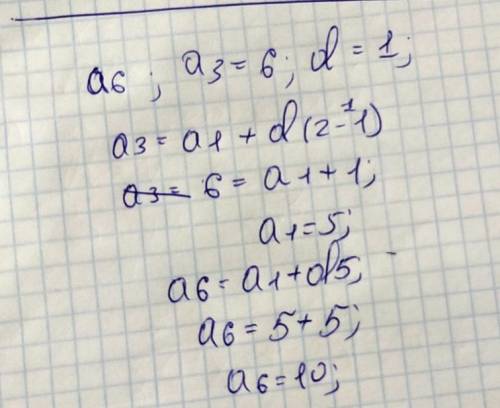 a6 ; a3 = 6 ; d = 1 ;
a3 = a1 + d(2-1) 1
a3 = 6 = a1 + 1;
a1 = 5;
a6 = a1 + d5;
a6 = 5 + 5;
a6 = 10;